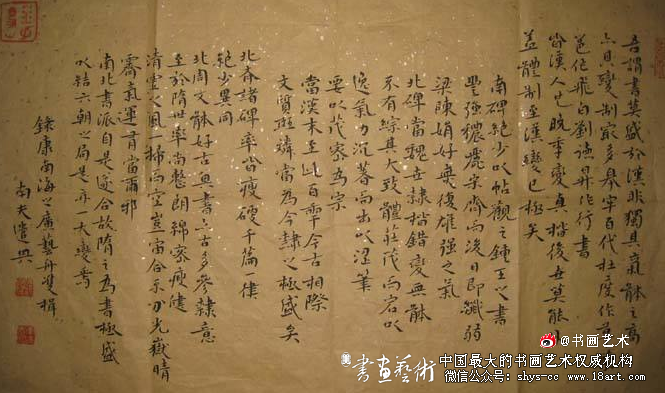 吾謂書莫盛於漢非獨其氣體之高
亦其變制最多皋牢百代杜度作草
邕作飛白劉德昇作行書
皆漢人也晚季變真楷後世莫能
蓋體制至漢變已極矣
南碑絕少以帖觀之鍾王之書
豐強穠麗宋齊而後日即纖弱
梁陳娟好無復雄強之氣
北碑當魏世隸楷錯變無體
不有綜其大致體莊茂而宕以
逸氣力沉著而出以澀筆
要以茂密為宗
當漢末至此百年今古相際
文質斑璘當為今隸以極盛矣
北齊諸碑率皆瘦硬千篇一律
絕少異同
北周文體好古真書亦古多參隸意
至於隋世率尚整朗綿密瘦健
清虛之風一掃而空豈宙合分光嶽晴
霽氣運有當爾邪
南北書派自是遂合故隋之為書極盛
以結六朝之局是亦一大變焉
錄康南海之廣藝舟雙楫
南天遺興
@书画艺术
書畫藝術
中国最大的书画艺术权威机构
微信公众号：shys-cc www.18art.com